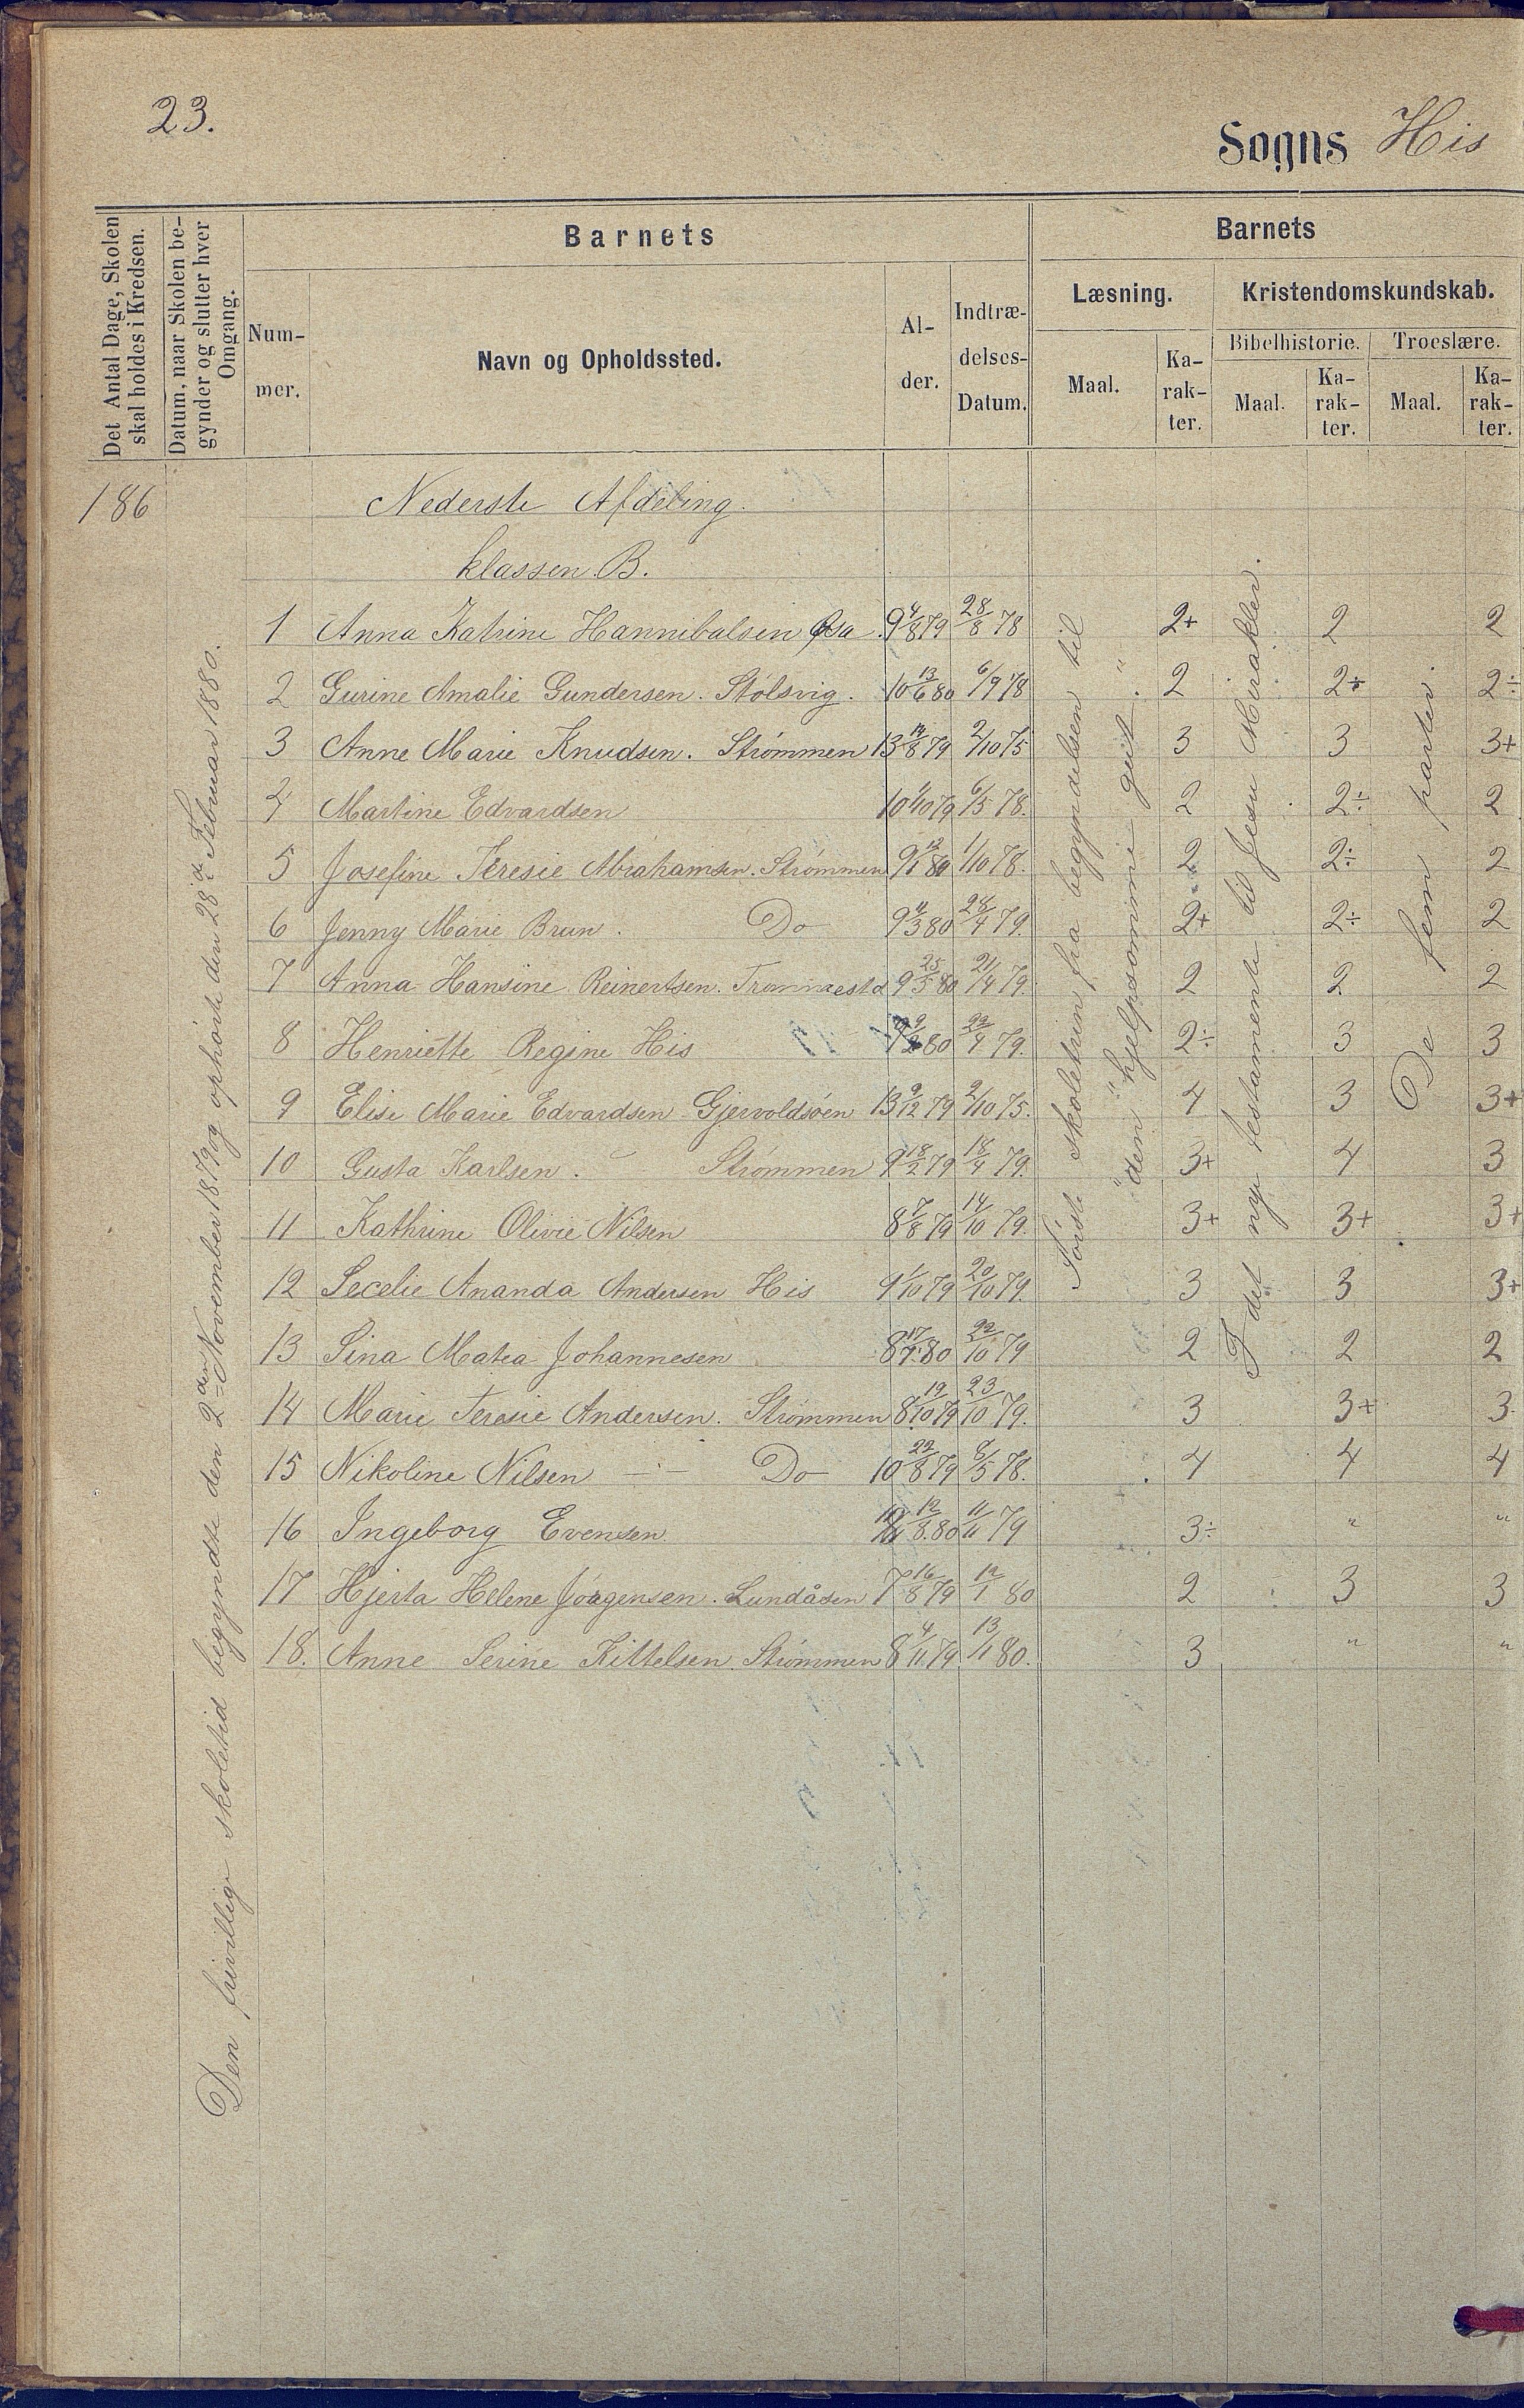 23.
Sogns His
Det Antal Dage, Skolen
skal holdes i Kredsen.
Datum, naar Skolen be-
gynder og slutter hver
Omgang.
Barnets
Num-
mer.
Navn og Opholdssted.
Al-
der.
Indtræ-
delses-
Datum.
Barnets
Læsning.
Kristendomskundskab.
Maal.
Ka-
rak-
ter.
Bibelhistorie.
Troeslære.
Maal.
Ka-
rak-
ter.
Maal.
Ka-
rak-
ter.
186
Den frivillige skoletid begyndte den 2den November 1879 og ophørte den 28de Februar 1880.
Nederste Afdeling.
klassen B.
Første skoletrin fra begyndelsen til
" den " hjelpsomme gut "
I det nye testamente til Jesu Mirakler.
De fem parter.
1 Anna Katrine Hannibalsen 9 4/8 79 28/8 78 2+ 2 2
2 Gurine Amalie Gundersen. Stølsvig. 10 13/6 80 6/9 78 2 2÷ 2÷
3 Anne Marie Knudsen. Strømmen 13 14/8 79 2/10 75 3 3 3+
4 Martine Edvardsen 10 79 6/5 78. 2 2÷ 2
5 Josefine Teresie Abrahamsen. Strømmen 9 80 1/10 78. 2 2÷ 2
6 Jenny Marie Brun. Do 9 4/3 80 28/4 79. 2+ 2÷ 2
7 Anna Hansine Reinertsen. Trommestd 9 25/5 80 21/4 79. 2 2 2
8 Henriette Regine His 80 22/4 79. 2÷ 3 3
9 Elise Marie Edvardsen Gjervoldsøen 13 9/12 79 2/10 75. 4 3 3+
10 Gusta Karlsen. Strømmen 9 18/2 79 18/4 79. 3+ 4 3
11 Kathrine Olivie Nilsen 8 7/8 79 14/10 79. 3+ 3+ 3+
12 Secelie Ananda Andersen His 9 1/10 79 20/10 79. 3 3 3+
13 Sina Matea Johannesen 8 80 22/10 79 2 2 2
14 Marie Teresie Andersen. Strømmen 8 19/10 79 23/10 79. 3 3+ 3
15 Nikoline Nilsen Do 10 22/8 79 8/5 78. 4 4 4
16 Ingeborg Evensen 12/8 80 11/11 79 3÷ " "
17 Hjerta Helene Jørgensen. Lundåsen 7 16/8 79 12/1 80 2 3 3
18. Anne Serine Kittelsen. Strømmen 8 4/11 79. 13/1 80. 3 " "